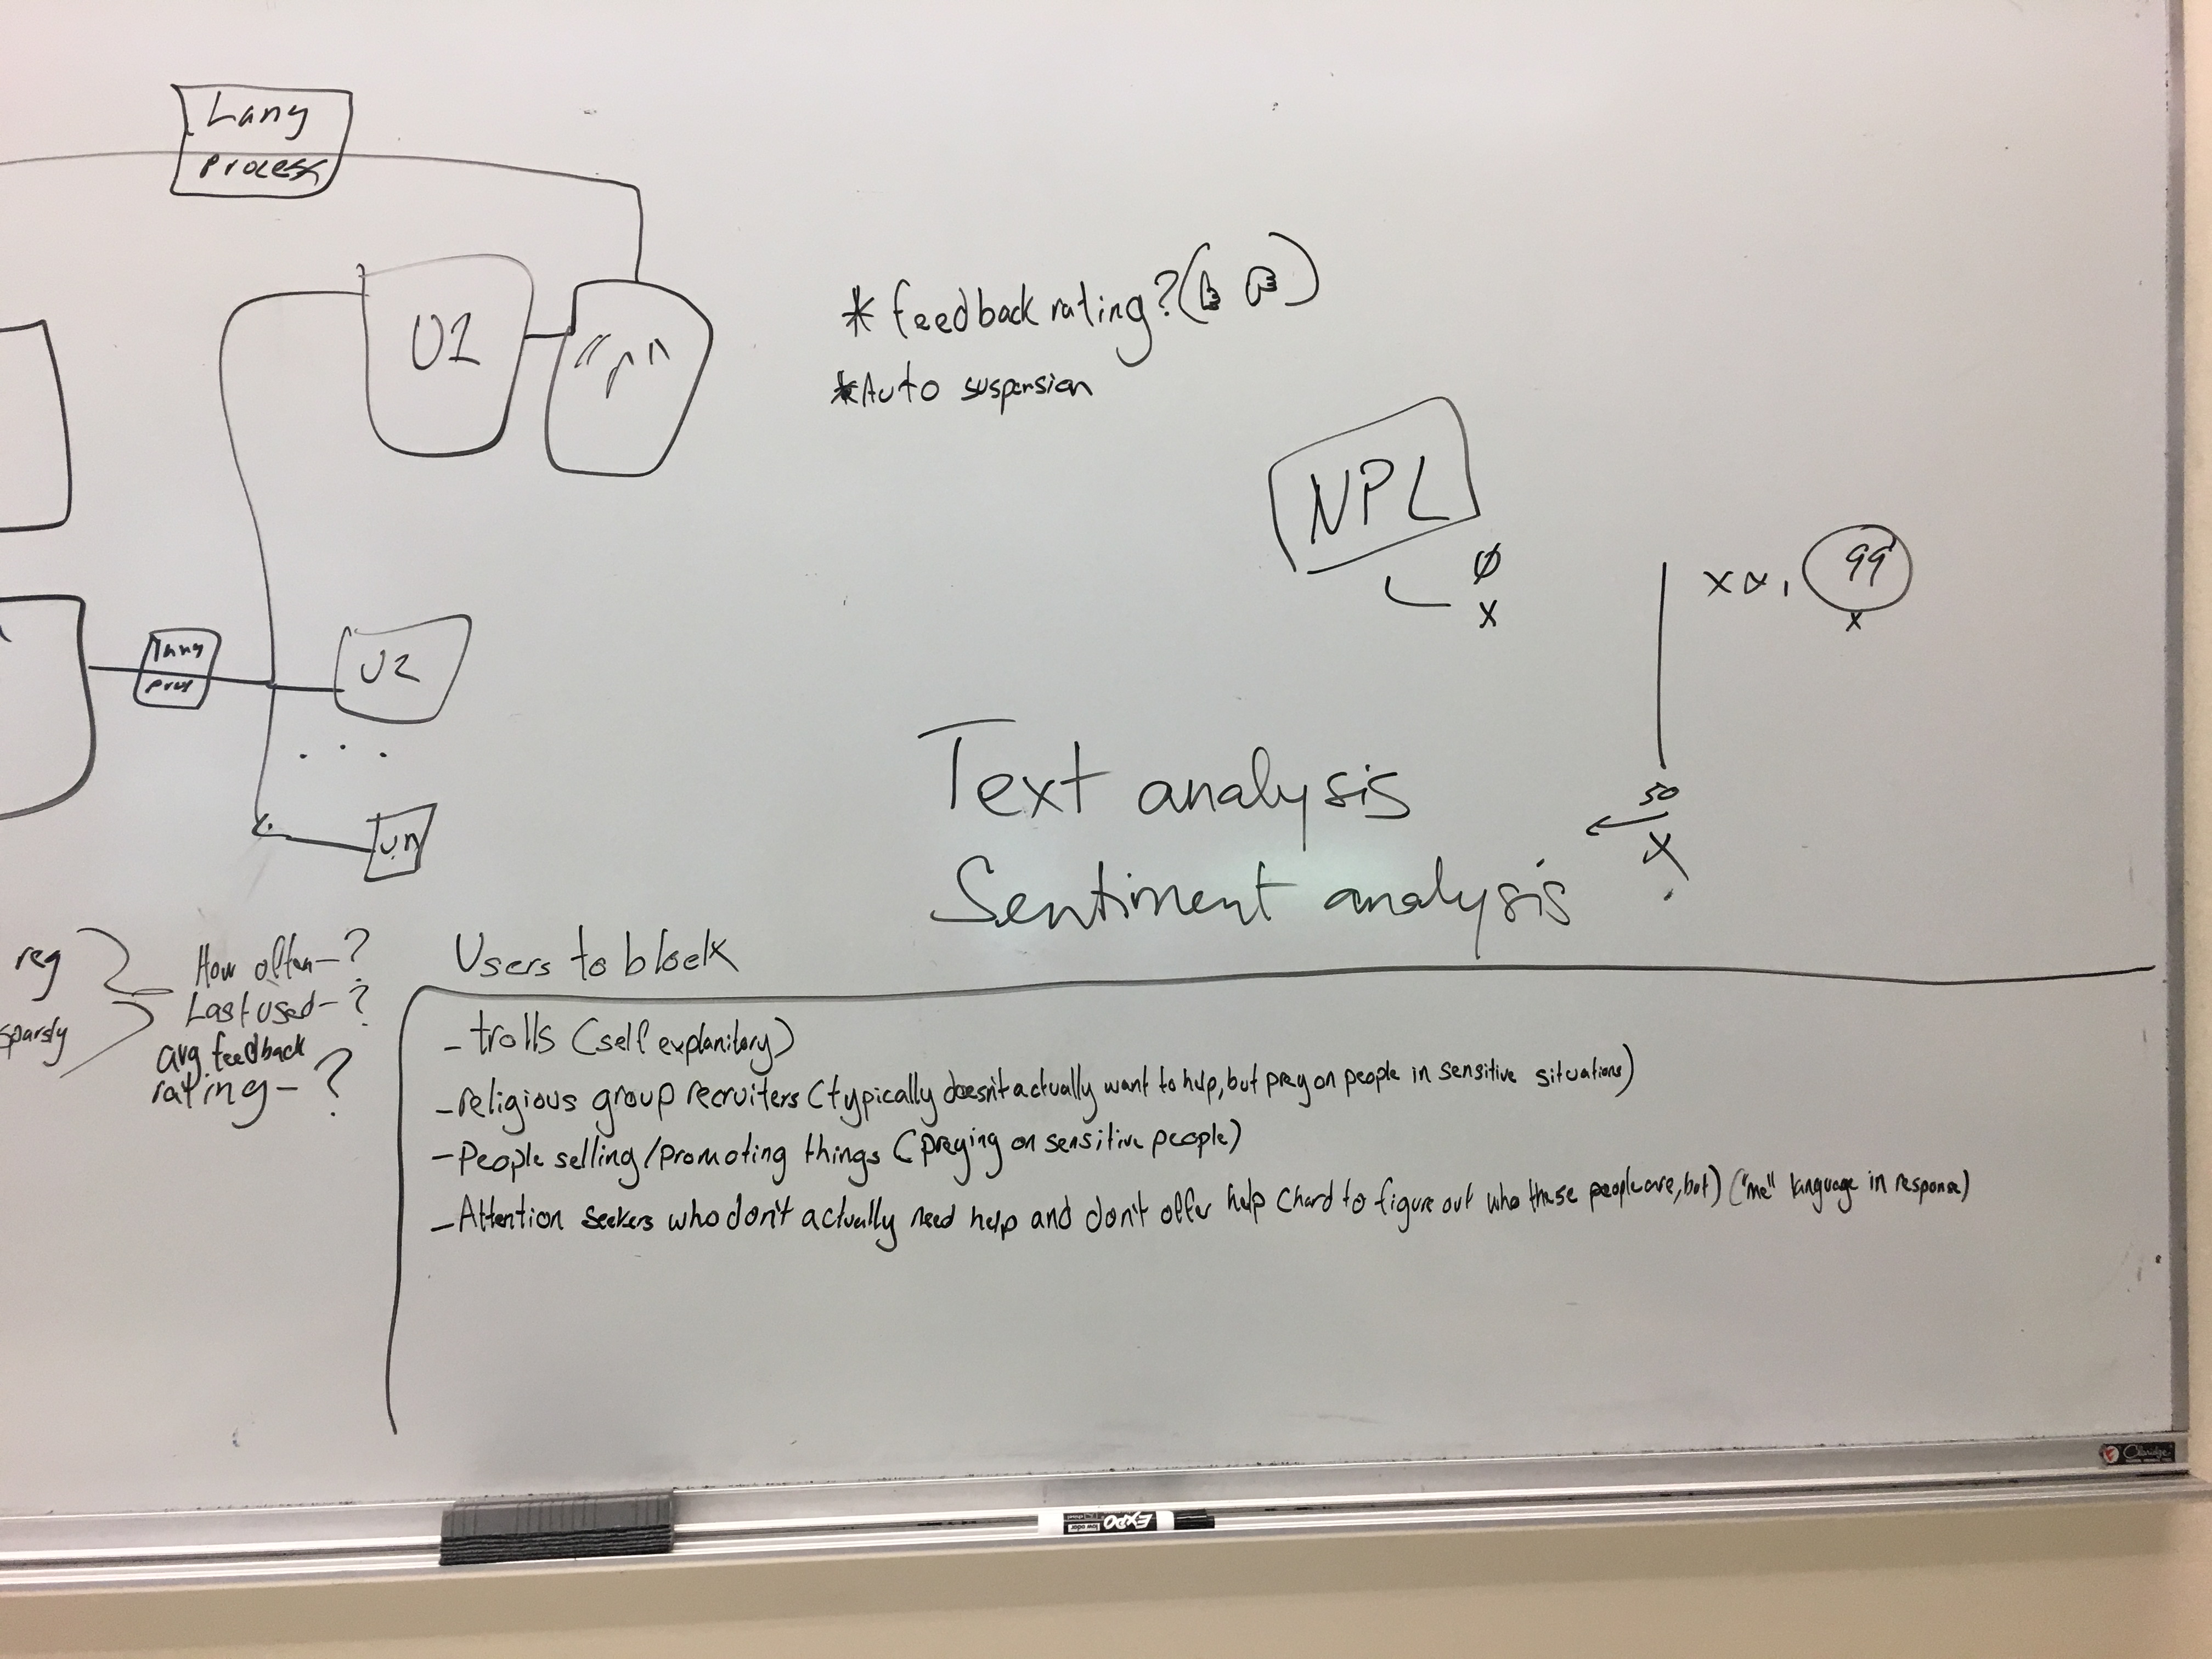 Lang
process
U1
* feedback rating? ( )
*Auto suspension
NPL
Ø
X
99
x
lang
U2
. . .
Un
50
X
Text analysis
Sentiment analysis
reg
sparsly
How often-?
Last used-?
avg. feedback
rating-?
Users to block
- trolls (self explanitory)
- religious group recruiters (typically doesn't actually want to help, but prey on people in sensitive situations)
- People selling/promoting things (preying on sensitive people)
- Attention seekers who don't actually need help and don't offer help (hard to figure out who these people are, but) ("me" language in response)
Claridge
EXPO
low odor